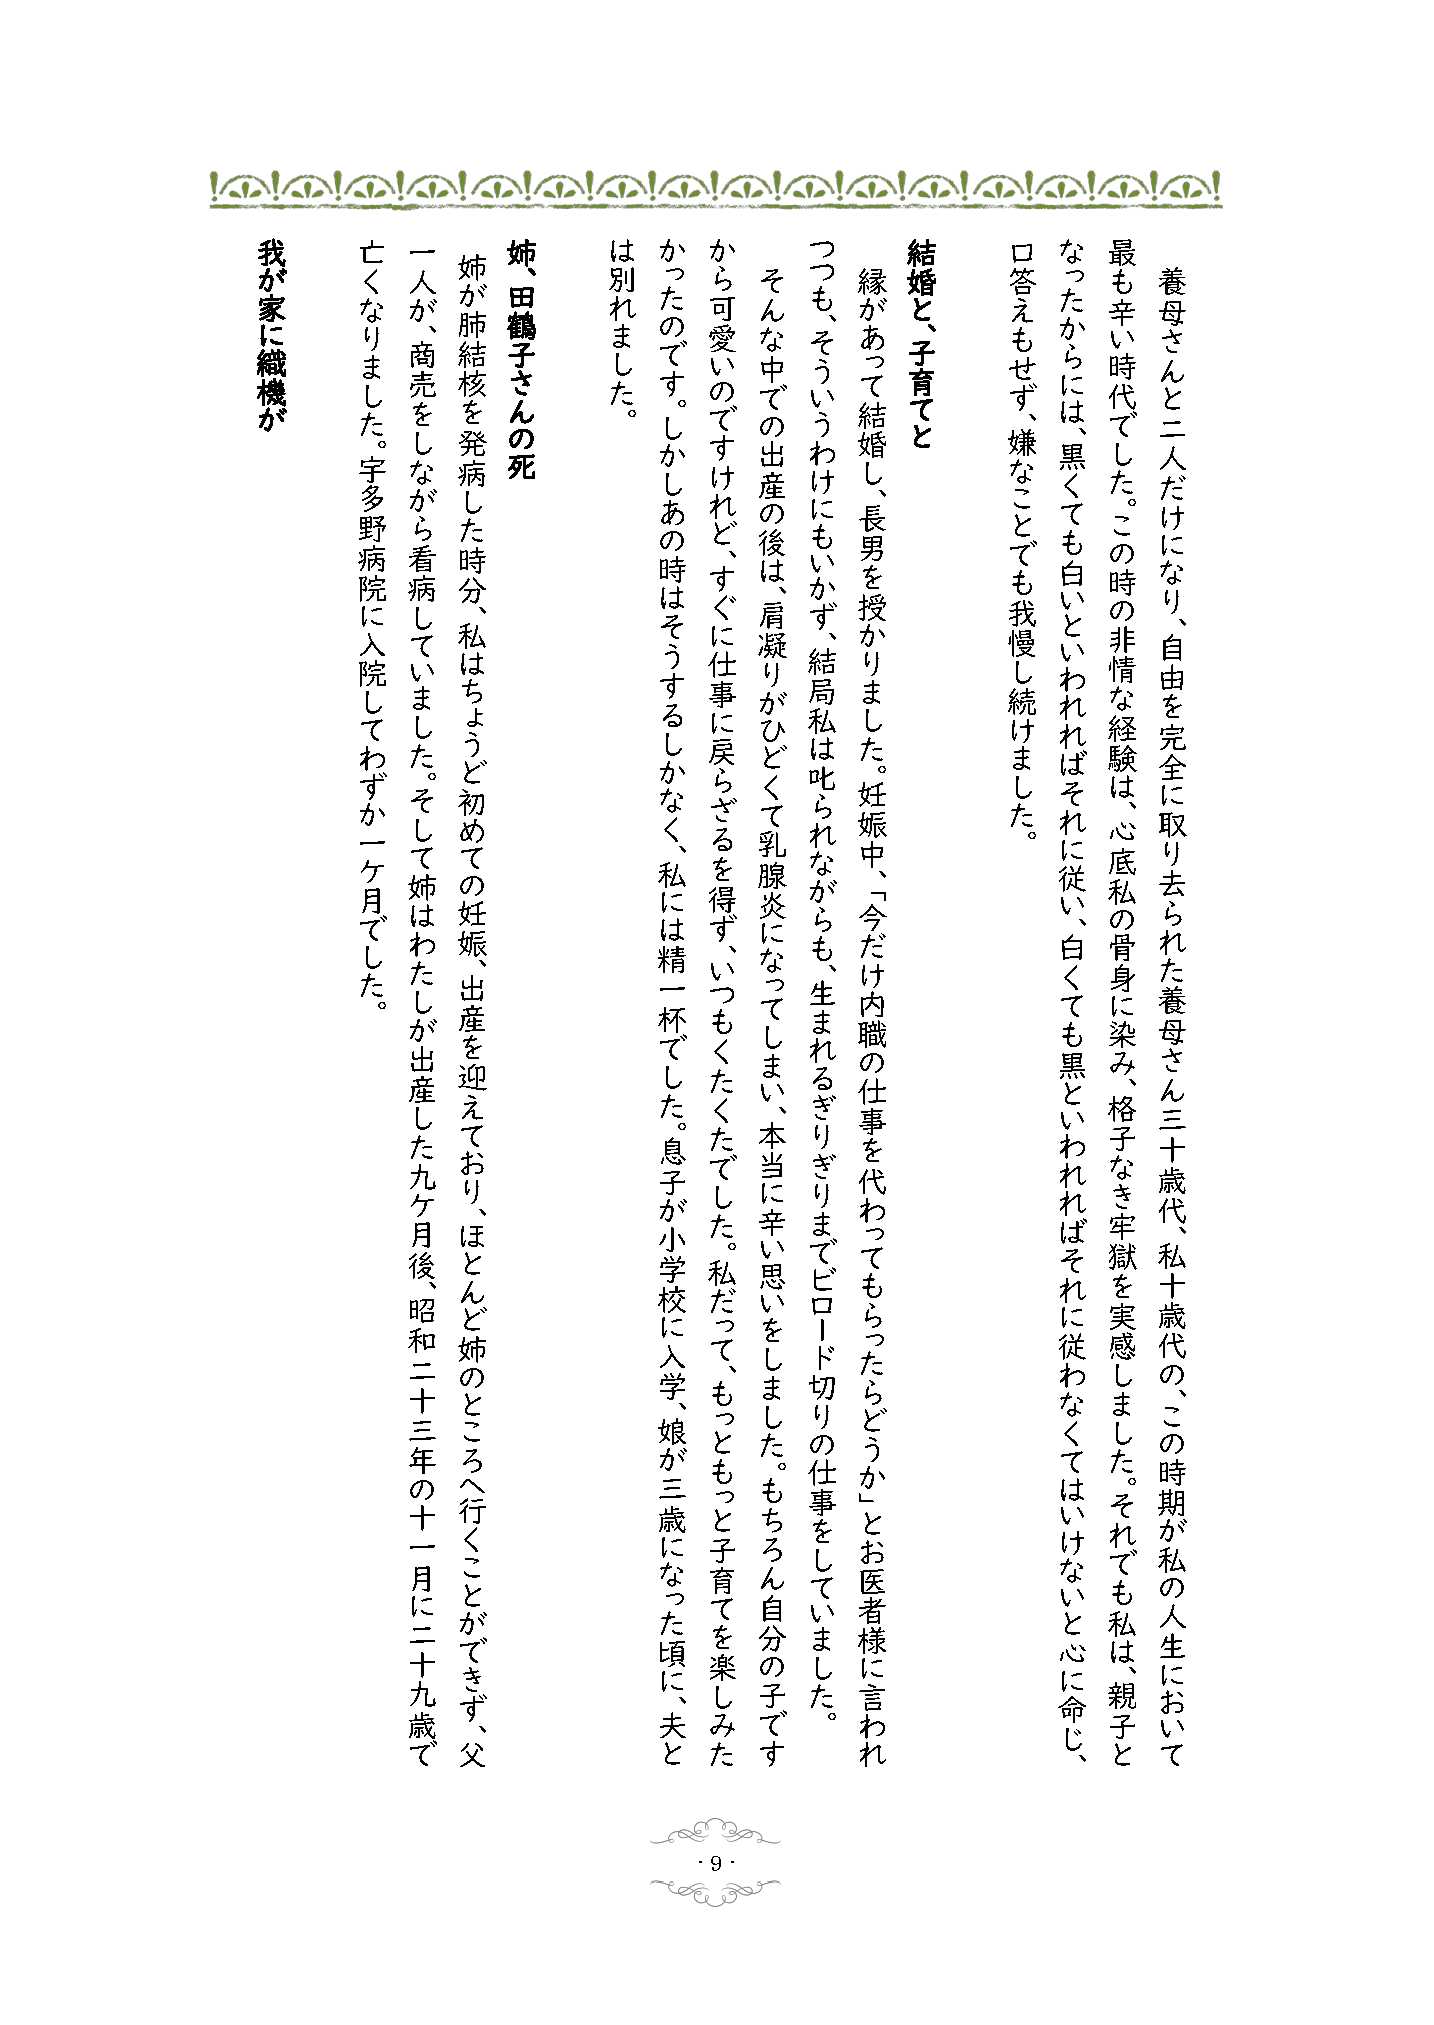 養母さんと二人だけになり、自由を完全に取り去られた養母さん三十歳代、私十歳代の、この時期が私の人生において
最も辛い時代でした。この時の非情な経験は、心底私の骨身に染み、格子なき牢獄を実感しました。それでも私は、親子と
なったからには、黒くても白いといわれればそれに従い、白くても黒といわれればそれに従わなくてはいけないと心に命じ、
口答えもせず、嫌なことでも我慢し続けました。
結婚と、子育てと
　縁があって結婚し、長男を授かりました。妊娠中、「今だけ内職の仕事を代わってもらったらどうか」とお医者様に言われ
つつも、そういうわけにもいかず、結局私は叱られながらも、生まれるぎりぎりまでビロード切りの仕事をしていました。
　そんな中での出産の後は、肩凝りがひどくて乳腺炎になってしまい、本当に辛い思いをしました。もちろん自分の子です
から可愛いのですけれど、すぐに仕事に戻らざるを得ず、いつもくたくたでした。私だって、もっともっと子育てを楽しみた
かったのです。しかしあの時はそうするしかなく、私には精一杯でした。息子が小学校に入学、娘が三歳になった頃に、夫と
は別れました。
姉、田鶴子さんの死
　姉が肺結核を発病した時分、私はちょうど初めての妊娠、出産を迎えており、ほとんど姉のところへ行くことができず、父
一人が、商売をしながら看病していました。そして姉はわたしが出産した九ケ月後、昭和二十三年の十一月に二十九歳で
亡くなりました。宇多野病院に入院してわずか一ケ月でした。
我が家に織機が
- 9 -